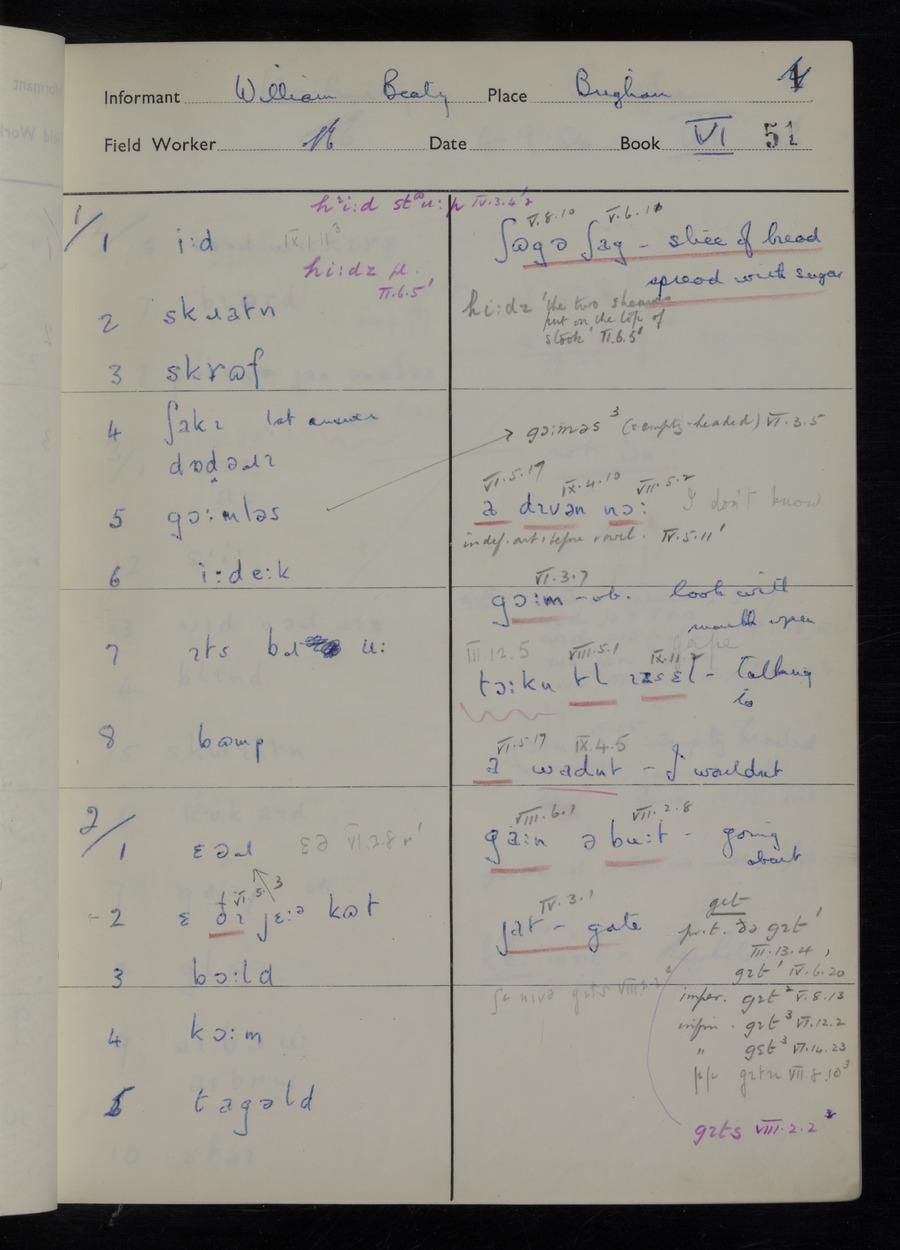 Informant William Beaty Place Brigham 1
Field Worker Date Book VI 51
1/
hᵊi:d IV.3.4'2
1 i:d IX.1.11³
hi:dz pl.
II.6.5'
2 skɹatn
3 skrɷf
4 ʃakɪ 1st answer
dɒdəɹɪ
5 gɔ:mləs
6 i:de:k
7 ɪts u:
8 bɷmp
2/
1 ɛəɹ ɛə VI.2.8
VI.5.3
2 ɛ ðɪ jɛ:ə kɷt
3 bɔ:ld
4 kɔ:m
5 tagəld
V.8.10 V.6.10
ʃɷgə ʃag - slice of bread
spread with sugar
hi:dz 'the two sheaves
put on the top of
stook' II.6.5'
gɔ:məs³ (= empty-headed) VI.3.5
VI.5.17 IX.4.10 VII.5.2
a dɪvən nɔ: I don't know
indef. art. before vowel. IV.5.11'
VI.3.7
gɔ:m - vb. look with
mouth open
gape
III.12.5 VIII.5.1 IX.11.2
tɔ:kn tl ɪzsɛl - talking
to
VI.5.17 IX.4.5
a wadnt - I wouldnt
VIII.6.1 VII.2.8
ga:n əbu:t - going
about
IV.3.1
jat - gate
get
pr.t. ðə gɪt'
III.13.4,
gɪt' IV.6.20
imper. gɪt² V.8.13
infin. gɪt³ VI.12.2
" gɛt³ VI.14.23
pp gɪtn VII.8.10³
gɪts VIII.2.2²